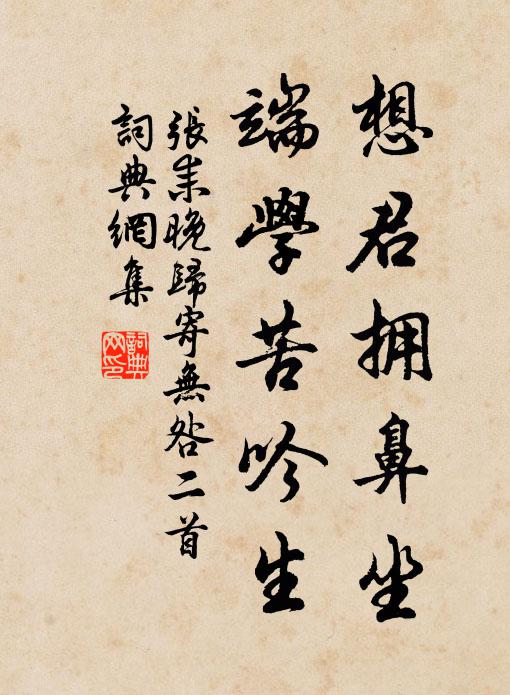 想君拥鼻坐
端學苦吟生
張耒晚歸寄無咎二首
詞典網集
詞典網印